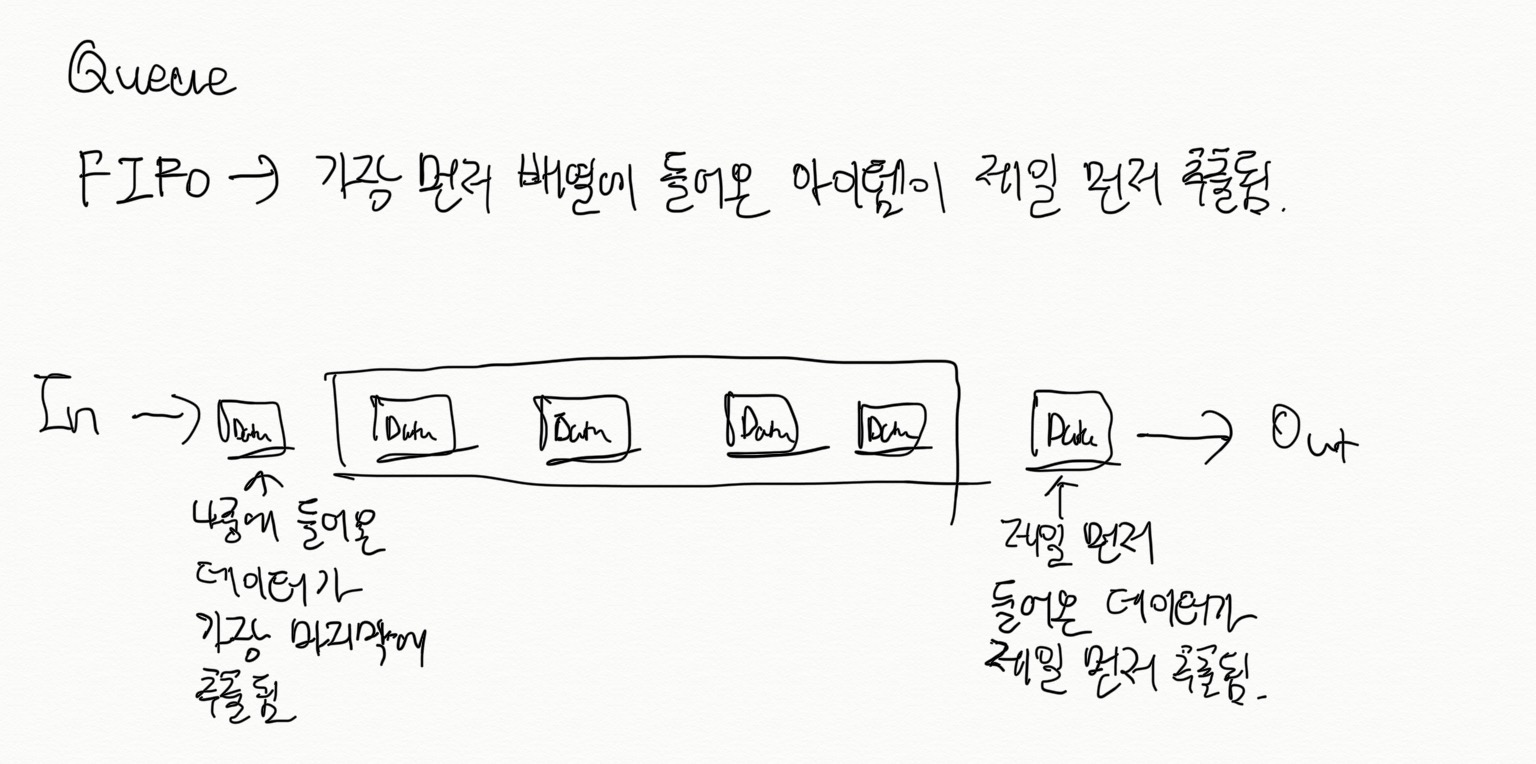 Queue
FIFO → 가장 먼저 배열에 들어온 아이템이 제일 먼저 추출됨.
In → Data Data Data Data Data Data → Out
↑
나중에 들어온
데이터가
가장 마지막에
추출됨
↑
제일 먼저
들어온 데이터가
제일 먼저 추출됨.